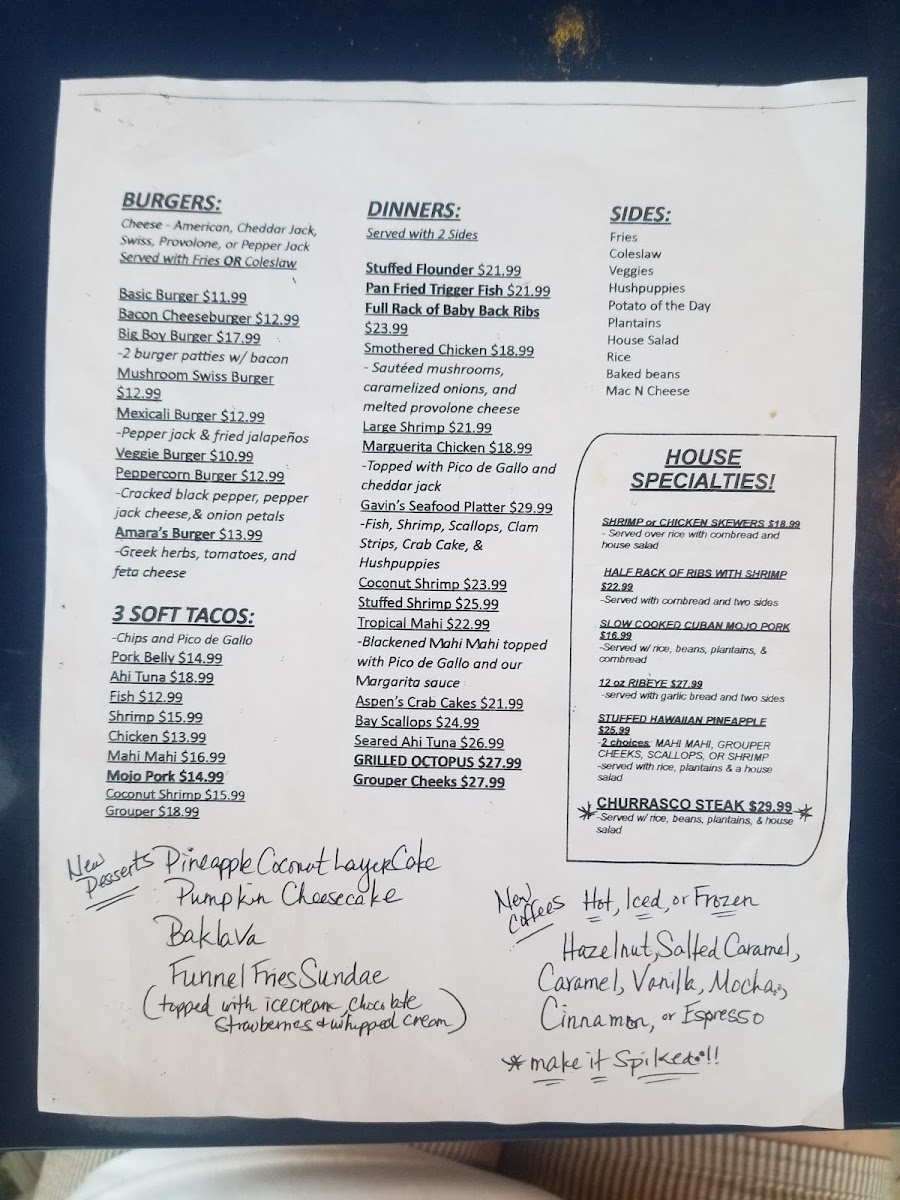 BURGERS:
Cheese - American, Cheddar Jack,
Swiss, Provolone, or Pepper Jack
Served with Fries OR Coleslaw
Basic Burger $11.99
Bacon Cheeseburger $12.99
Big Boy Burger $17.99
-2 burger patties w/ bacon
Mushroom Swiss Burger
$12.99
Mexicali Burger $12.99
-Pepper jack & fried jalapeños
Veggie Burger $10.99
Peppercorn Burger $12.99
-Cracked black pepper, pepper
jack cheese,& onion petals
Amara's Burger $13.99
-Greek herbs, tomatoes, and
feta cheese
3 SOFT TACOS:
-Chips and Pico de Gallo
Pork Belly $14.99
Ahi Tuna $18.99
Fish $12.99
Shrimp $15.99
Chicken $13.99
Mahi Mahi $16.99
Mojo Pork $14.99
Coconut Shrimp $15.99
Grouper $18.99
DINNERS:
Served with 2 Sides
Stuffed Flounder $21.99
Pan Fried Trigger Fish $21.99
Full Rack of Baby Back Ribs
$23.99
Smothered Chicken $18.99
- Sautéed mushrooms,
caramelized onions, and
melted provolone cheese
Large Shrimp $21.99
Marguerita Chicken $18.99
-Topped with Pico de Gallo and
cheddar jack
Gavin's Seafood Platter $29.99
-Fish, Shrimp, Scallops, Clam
Strips, Crab Cake, &
Hushpuppies
Coconut Shrimp $23.99
Stuffed Shrimp $25.99
Tropical Mahi $22.99
-Blackened Mahi Mahi topped
with Pico de Gallo and our
Margarita sauce
Aspen's Crab Cakes $21.99
Bay Scallops $24.99
Seared Ahi Tuna $26.99
GRILLED OCTOPUS $27.99
Grouper Cheeks $27.99
SIDES:
Fries
Coleslaw
Veggies
Hushpuppies
Potato of the Day
Plantains
House Salad
Rice
Baked beans
Mac N Cheese
HOUSE
SPECIALTIES!
SHRIMP or CHICKEN SKEWERS $18.99
- Served over rice with cornbread and
house salad
HALF RACK OF RIBS WITH SHRIMP
$22.99
-Served with cornbread and two sides
SLOW COOKED CUBAN MOJO PORK
$16.99
-Served w/ rice, beans, plantains, &
cornbread
12 oz RIBEYE $27.99
-served with garlic bread and two sides
STUFFED HAWAIIAN PINEAPPLE
$25.99
-2 choices: MAHI MAHI, GROUPER
CHEEKS, SCALLOPS, OR SHRIMP
-served with rice, plantains & a house
salad
* CHURRASCO STEAK $29.99 *
-Served w/ rice, beans, plantains, & house
salad
New
Desserts
Pineapple Coconut Layer Cake
Pumpkin Cheesecake
Baklava
Funnel Fries Sundae
(topped with icecream, Chocolate
Strawberries & whipped cream)
New
Coffees
Hot, Iced, or Frozen
Hazelnut, Salted Caramel,
Caramel, Vanilla, Mocha,
Cinnamon, or Espresso
* make it Spiked!!